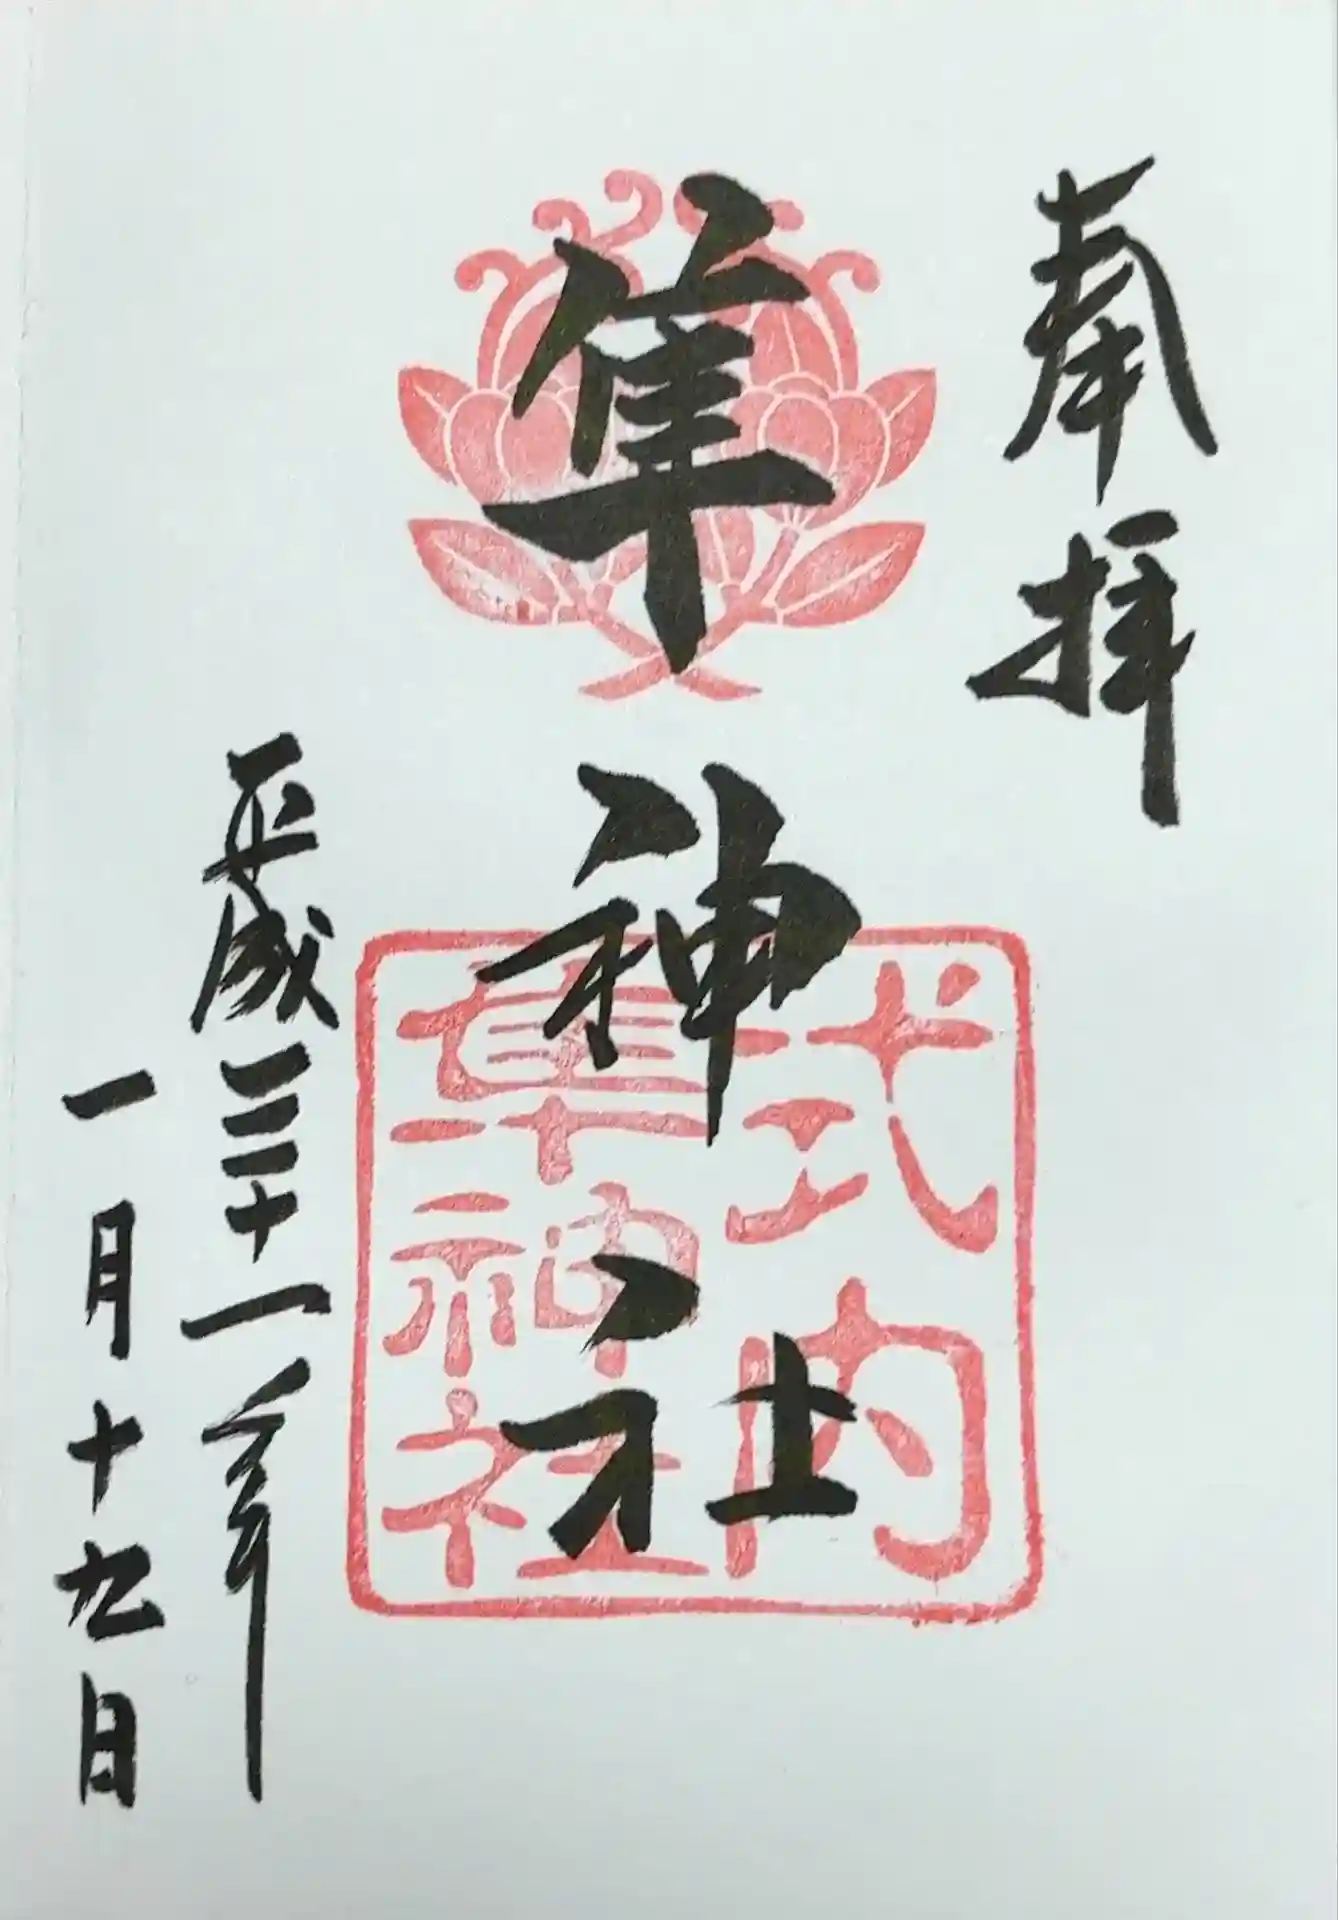 奉拝
隼神社
式内
隼神社
平成三十一年
一月十九日